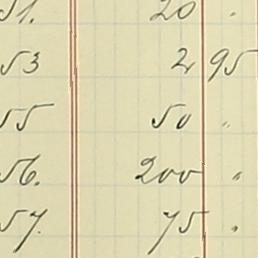 51. 20 "
53 2 95
55 50 "
56. 200 "
57. 75 "